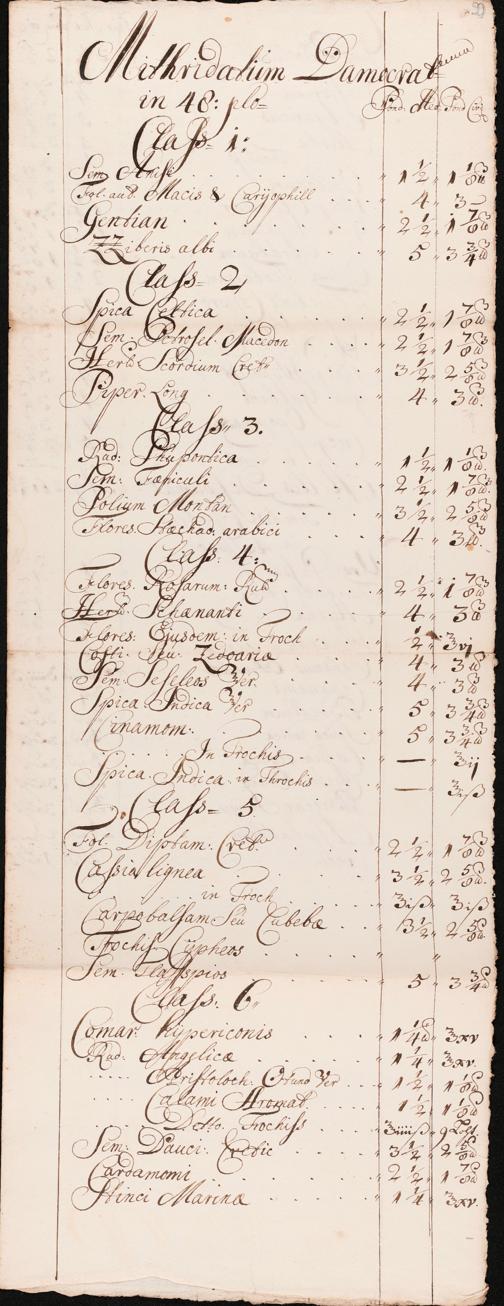 Mithridatium Damocrat=
in 48: plo=
Pond. Med. Pond. Civ.
Class= 1:
Sem Anise . . . " 1 1/2 " 1 1/8
Fol. aut. Macis & Caryophill . . . " 4 " 3
Gentian . . . " 2 1/2 " 1 7/8
ZZiberis albi . . . " 5 " 3 3/4
Class= 2
Spica Celtica . . . " 2 1/2 " 1 7/8
Sem: Petrosel. Macedon . . . " 2 1/2 " 1 7/8
Herb Scordium Cret" . . . " 3 1/2 " 2 5/8
Piper. Long . . . " 4 " 3
Class" 3.
Rad: Phu pontica . . . 1 1/2 " 1 1/8
Sem: Fæniculi . . . 2 1/2 " 1 7/8
Polium Montan . . . " 3 1/2 " 2 5/8
Flores. Stæchad. arabici . . . " 4 " 3
Class: 4:
Flores. Rosarum: Rub . . . 2 1/2 " 1 7/8
Herb: Schænanti . . . 4 " 3
Flores: Ejusdem: in Troch . . . " 1/2 " ʒvj
Costi. Seu: Zedoariæ . . . " 4 " 3
Sem: Seseleos Ver . . . " 4 " 3
Spica Indica Ver . . . 5 " 3 3/4
Cinamom: . . . 5 " 3 3/4
In Trochis . . . — ʒij
Spica. Indica. in Throchis . . . — ʒiß
Class= 5
Fol. Dictam: Cret: . . . 2 1/2 " 1 7/8
Cassia lignea . . . " 3 1/2 " 2 5/8
in Troch . . . ʒiß " ʒiß
Carpobalsam Seu Cubebæ . . . 3 1/2 " 2 5/8
Trochis Cypheos . . . " "
Sem: Thlasspios . . . 5 " 3 3/4
Class: 6"
Comar: hypericonis . . . 1 1/4 " ʒxv
Rad: Angelicæ . . . " 1 1/4 " ʒxv.
. . . Aristoloch: Rotund Ver . . . " 1 1/2 " 1 1/8
. . . Calami Aromat . . . " 1 1/2 " 1 1/8
. . . Detto. Trochiss . . . ʒiiiß " 9
Sem: Dauci. Cretic . . . " 3 1/2 " 2 5/8
Cardamomi . . . " 2 1/2 " 1 7/8
Stinci Marinæ . . . " 1 1/4 " ʒxv.